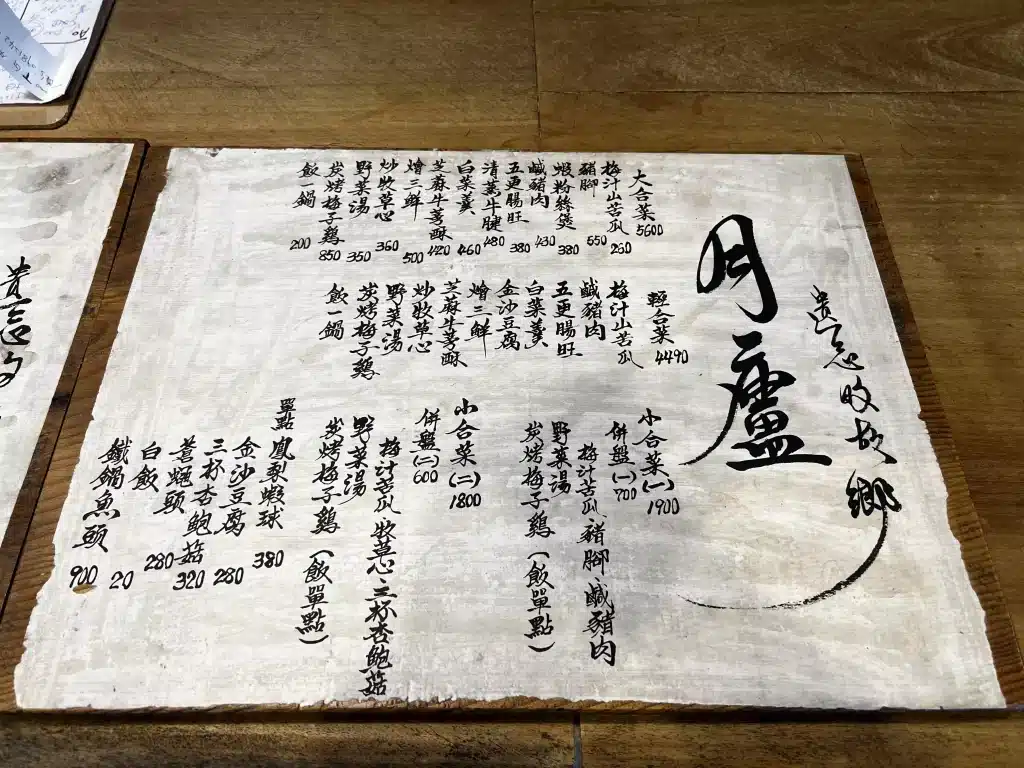 遺忘的故鄉
月廬
大合菜 5600
梅汁山苦瓜 260
豬腳 550
蝦粉絲煲 380
鹹豬肉 430
五更腸旺 380
清蒸牛腱 480
白菜羹 460
芝麻牛蒡酥 420
燴三鮮 500
炒牧草心 360
野菜湯 350
炭烤梅子鷄 850
飯一鍋 200
輕合菜 4490
梅汁山苦瓜
鹹豬肉
五更腸旺
白菜羹
金沙豆腐
燴三鮮
芝麻牛蒡酥
炒牧草心
野菜湯
炭烤梅子鷄
飯一鍋
小合菜(一) 1900
併盤(一) 700
梅汁苦瓜、豬腳、鹹豬肉
野菜湯
炭烤梅子鷄(飯單點)
小合菜(二) 1800
併盤(二) 600
梅汁苦瓜、牧草心、三杯杏鮑菇
野菜湯
炭烤梅子鷄(飯單點)
單點
鳳梨蝦球 380
金沙豆腐 280
三杯杏鮑菇 320
蒼蠅頭 280
白飯 20
鐵鍋魚頭 900